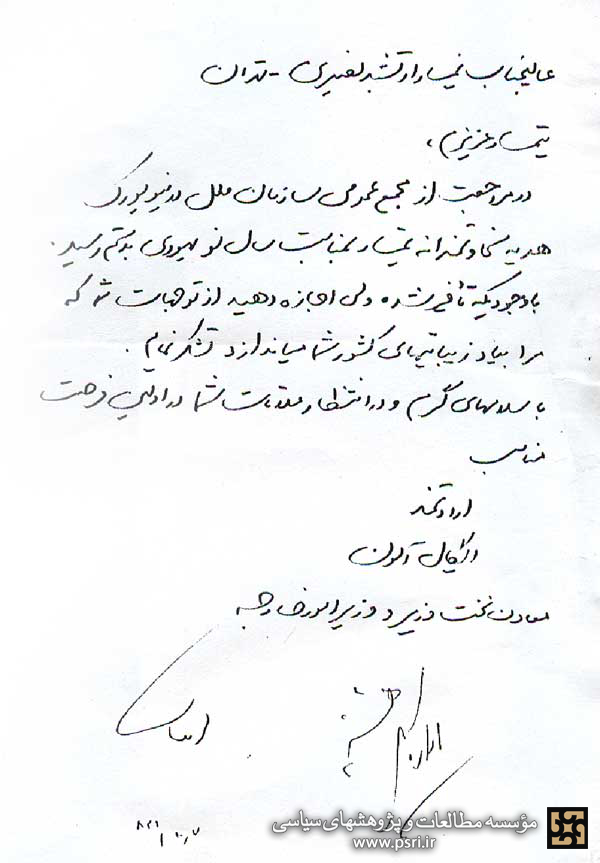 عالیجناب تیمسار ارتشبد نصیری - تهران
تیمسار عزیزم،
در مراجعت از مجمع عمومی سازمان ملل در نیویورک
هدیه سخاوتمندانه تیمسار بمناسبت سال نو یهودی بدستم رسید.
باوجودیکه تأخیر شده ولی اجازه دهید از توجهات شما که
مرا بیاد زیبائیهای کشور شما میاندازد تشکر نمایم.
با سلامهای گرم و در انتظار ملاقات شما در اولین فرصت
مناسب
ارادتمند
ایگال آلون
معاون نخست وزیر و وزیر امور خارجه
مؤسسه مطالعات و پژوهشهای سیاسی
www.psri.ir